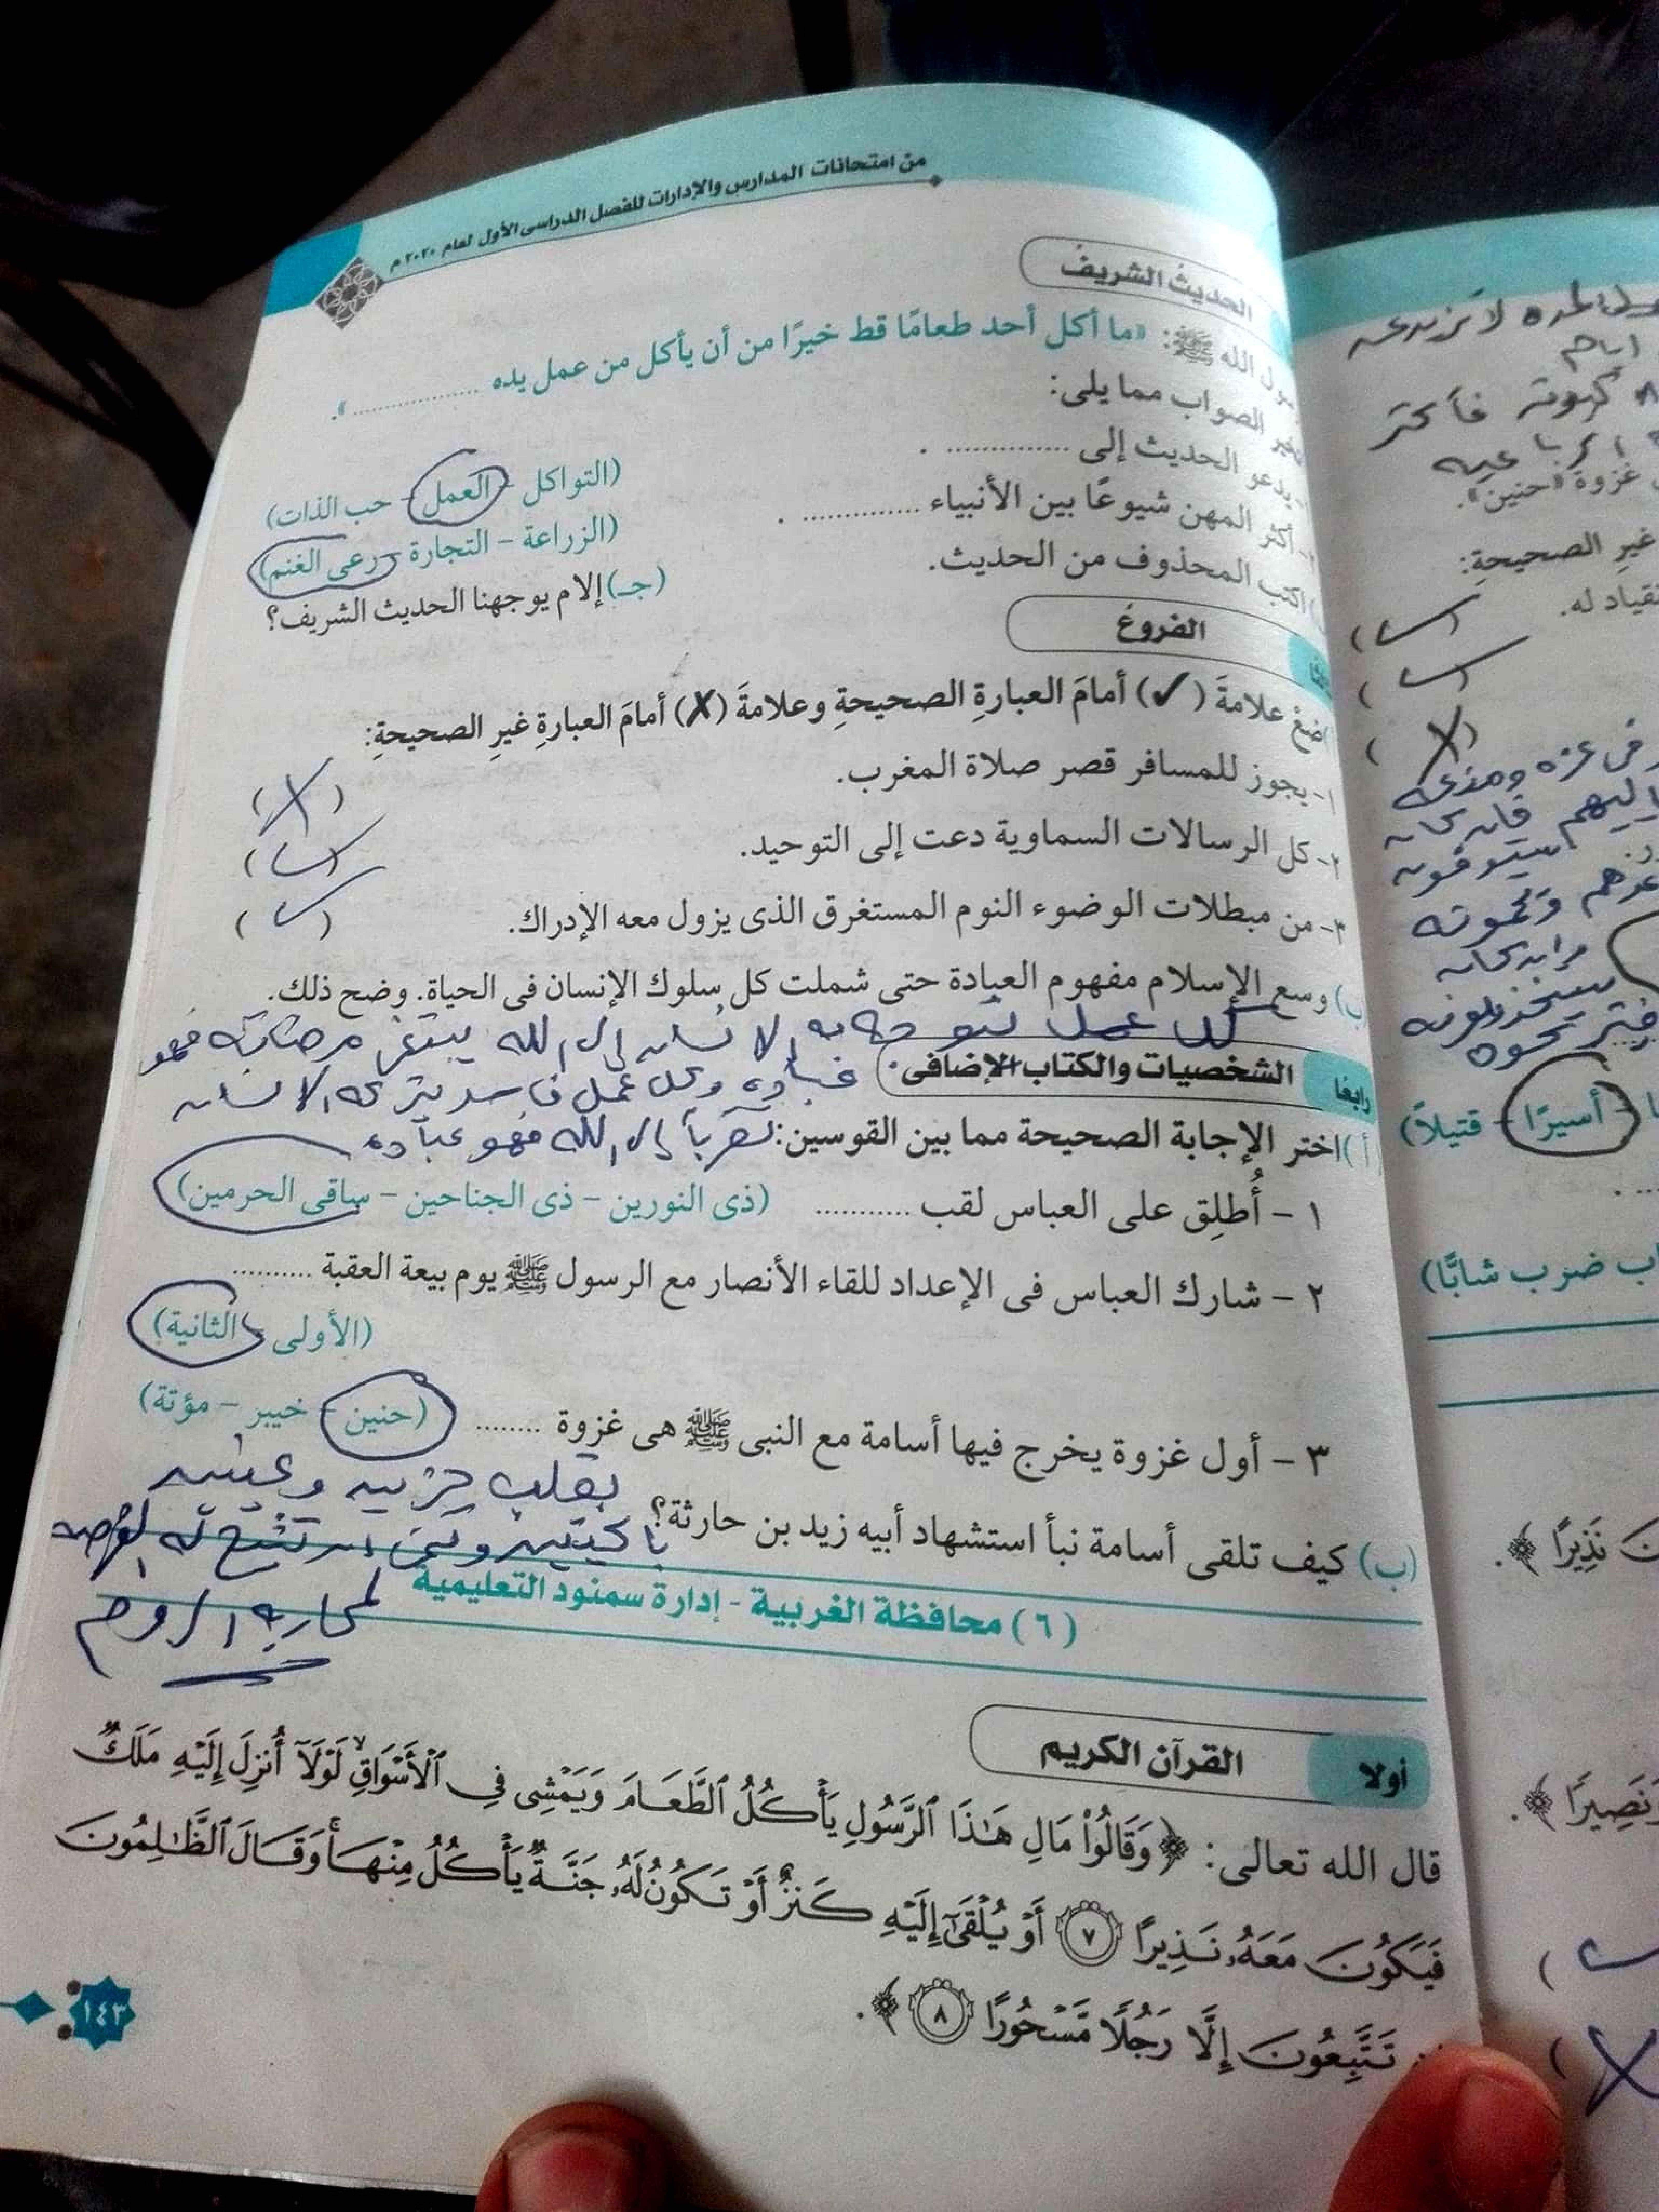 من امتحانات المدارس والإدارات للفصل الدراسى الأول لعام ٢٠٢٠ م
الحديث الشريف
الله ﷺ: «ما أكل أحد طعامًا قط خيرًا من أن يأكل من عمل يده ............».
الصواب مما يلى:
يدعو الحديث إلى ............ .
(التواكل - العمل - حب الذات)
أكثر المهن شيوعًا بين الأنبياء ............ .
(الزراعة - التجارة - رعى الغنم)
اكتب المحذوف من الحديث.
(جـ) إلام يوجهنا الحديث الشريف؟
الفروع
ضع علامةَ (✓) أمامَ العبارةِ الصحيحةِ وعلامةَ (✗) أمامَ العبارةِ غيرِ الصحيحةِ:
١- يجوز للمسافر قصر صلاة المغرب. (✗)
٢- كل الرسالات السماوية دعت إلى التوحيد. (✓)
٣- من مبطلات الوضوء النوم المستغرق الذى يزول معه الإدراك. (✓)
ب) وسع الإسلام مفهوم العبادة حتى شملت كل سلوك الإنسان فى الحياة. وضح ذلك.
كل عمل يتوجه به الإنسان إلى الله يبتغى مرضاته فهو
رابعًا الشخصيات والكتاب الإضافى.
عبادة وكل عمل فاسد يتركه الإنسان
أ) اختر الإجابة الصحيحة مما بين القوسين:
تقربًا إلى الله فهو عبادة
١ - أُطلِق على العباس لقب ............ (ذى النورين - ذى الجناحين - ساقى الحرمين)
٢ - شارك العباس فى الإعداد للقاء الأنصار مع الرسول ﷺ يوم بيعة العقبة ..........
(الأولى - الثانية)
٣ - أول غزوة يخرج فيها أسامة مع النبى ﷺ هى غزوة ........ (حنين - خيبر - مؤتة)
(ب) كيف تلقى أسامة نبأ استشهاد أبيه زيد بن حارثة؟
بقلب حزين وعينين
باكيتين وتمنى أن تتيح له الفرصة
لمحاربة الروم
(٦) محافظة الغربية - إدارة سمنود التعليمية
أولا القرآن الكريم
قال الله تعالى: ﴿وَقَالُوا۟ مَالِ هَـٰذَا ٱلرَّسُولِ يَأْكُلُ ٱلطَّعَامَ وَيَمْشِى فِى ٱلْأَسْوَاقِ ۙ لَوْلَآ أُنزِلَ إِلَيْهِ مَلَكٌ
فَيَكُونَ مَعَهُۥ نَذِيرًا ٧ أَوْ يُلْقَىٰٓ إِلَيْهِ كَنزٌ أَوْ تَكُونُ لَهُۥ جَنَّةٌ يَأْكُلُ مِنْهَا ۚ وَقَالَ ٱلظَّـٰلِمُونَ
تَتَّبِعُونَ إِلَّا رَجُلًا مَّسْحُورًا ٨﴾.
١٤٣
لا تزيد عن
أيام
غزوة «حنين».
غيرِ الصحيحةِ:
له.
أسيرًا - قتيلاً)
ضرب شابًّا)
نَذِيرًا﴾.
وَنَصِيرًا﴾.